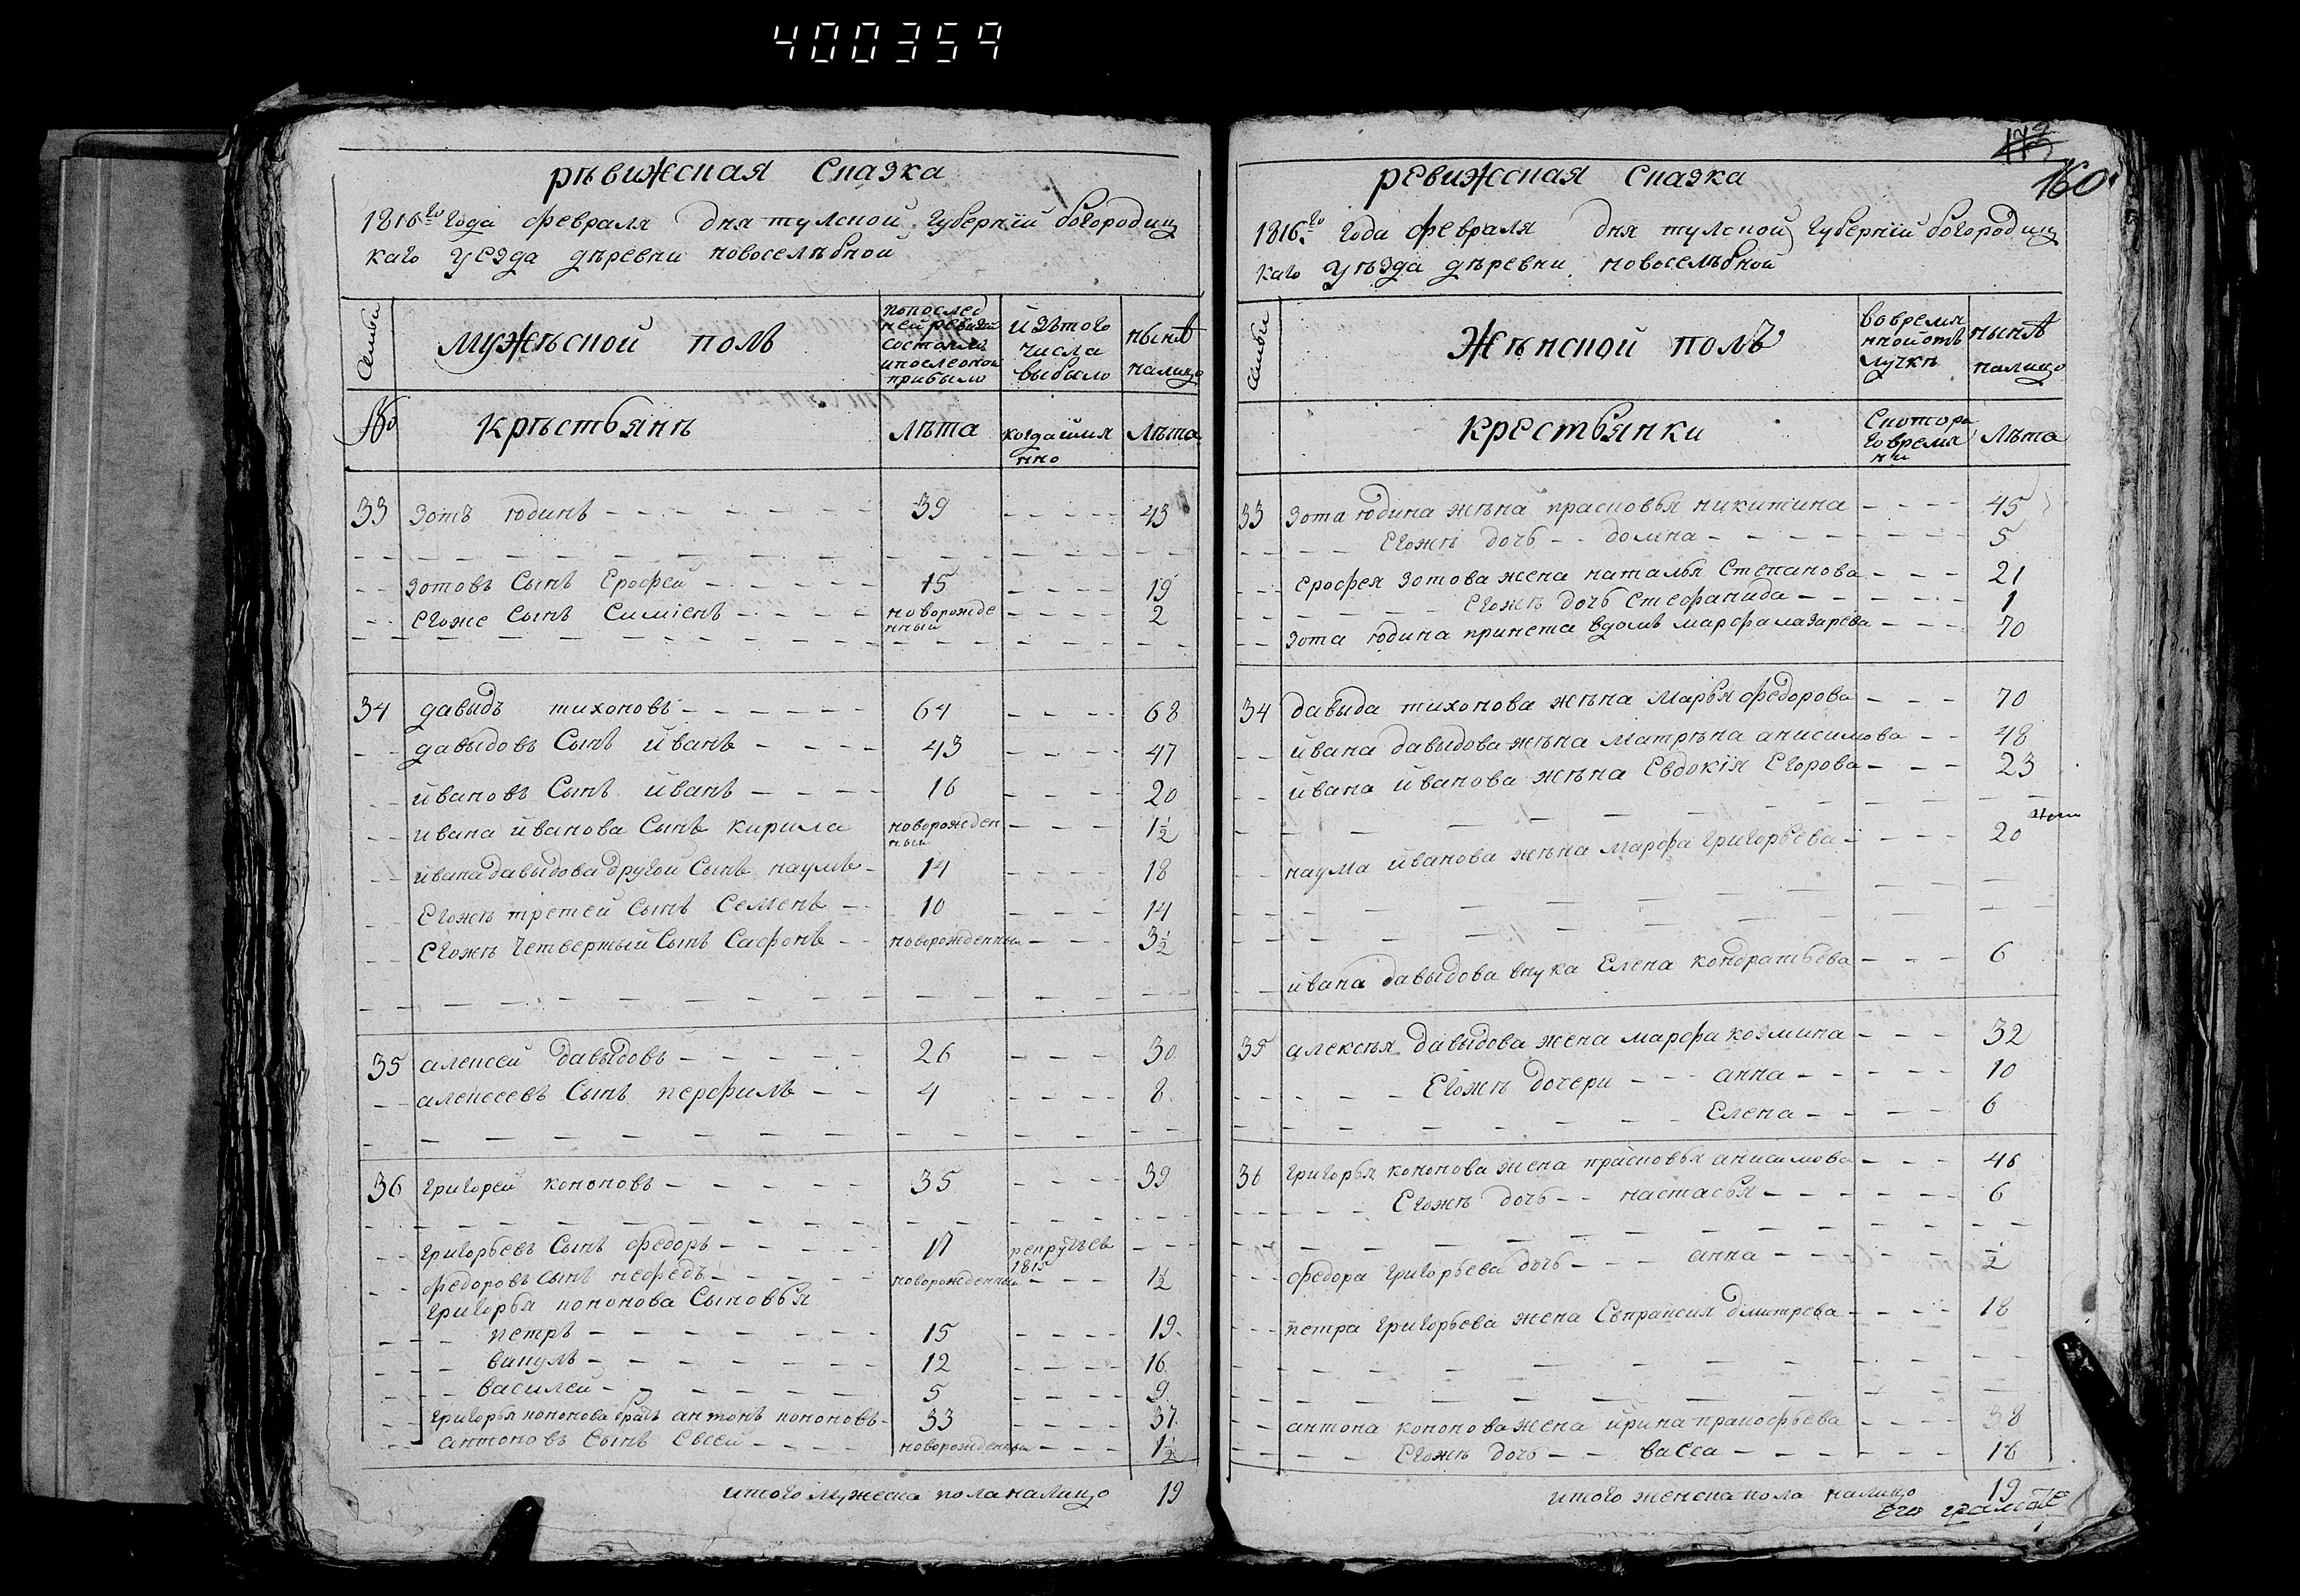 400359
рѣвижская Сказка
1816го Года февраля дня тулской Губерніи богородиц
каго уезда дѣревни новоселѣбной
Семьи
мужѣской полъ
попослед
ней ревизіи
состояло
ипослеоной
прибыло
изътого
числа
выбыло
нынѣ
налицо
№
крѣстьянѣ
лѣта
когдаимя
нно
лѣта
33 Зотъ юдинъ 39 43
Зотовъ Сынъ Ерофей 15 19
Егоже Сынъ Симіенъ новорожде
нный 2
34 давыдъ тихоновъ 64 68
давыдовъ Сынъ иванъ 43 47
ивановъ Сынъ иванъ 16 20
ивана иванова Сынъ кирила новорожден
ный 1½
ивана давыдова другой Сынъ наумъ 14 18
Егожъ третей Сынъ Семенъ 10 14
Егожъ четвертый Сынъ Сафонъ новорожденный 3½
35 алексей давыдовъ 26 30
алексеевъ Сынъ перфилъ 4 8
36 григорей кононовъ 35 39
григорьевъ Сынъ федоръ 17 рекруты въ
1815
федоровъ сынъ нефедъ новорожденный 1½
григорья кононова Сыновья
петръ 15 19
викулъ 12 16
василей 5 9
григорья кононова братъ антонъ кононовъ 33 37
антоновъ Сынъ Евсей новорожденный 1½
итого мужеска пола налицо 19
173
160
ревижская Сказка
1816го Года февраля дня тулской Губерніи богородиц
каго уѣзда дѣревни новоселѣбной
Семьи
Жѣнской полъ
вовремя
нной отъ
лучкѣ
нынѣ
налицо
крестьянки
Скотора
го время
ни
лѣта
33 Зота юдина жѣна прасковья никитина 45
Егожъ дочь домна 5
Ерофея Зотова жена наталья Степанова 21
Егожъ дочь Стефанида 1
Зота юдина принета вдомъ марфа лазарева 70
34 давыда тихонова жѣна Марья федорова 70
ивана давыдова жѣна Матрѣна анисимова 48
ивана иванова жѣна Евдокія Егорова 23
наума иванова жѣна марфа григорьева 20
ивана давыдова внука Елена кондратьева 6
35 алексѣя давыдова жена марфа козмина 32
Егожъ дочери анна 10
Елена 6
36 григорья кононова жена прасковья анисимова 46
Егожъ дочь настасья 6
федора григорьева дочь анна ½
петра григорьева жена Евпраксия дмитрева 18
антона кононова жена ирина пракофьева 38
Егожъ дочь васса 16
итого женска пола налицо 19